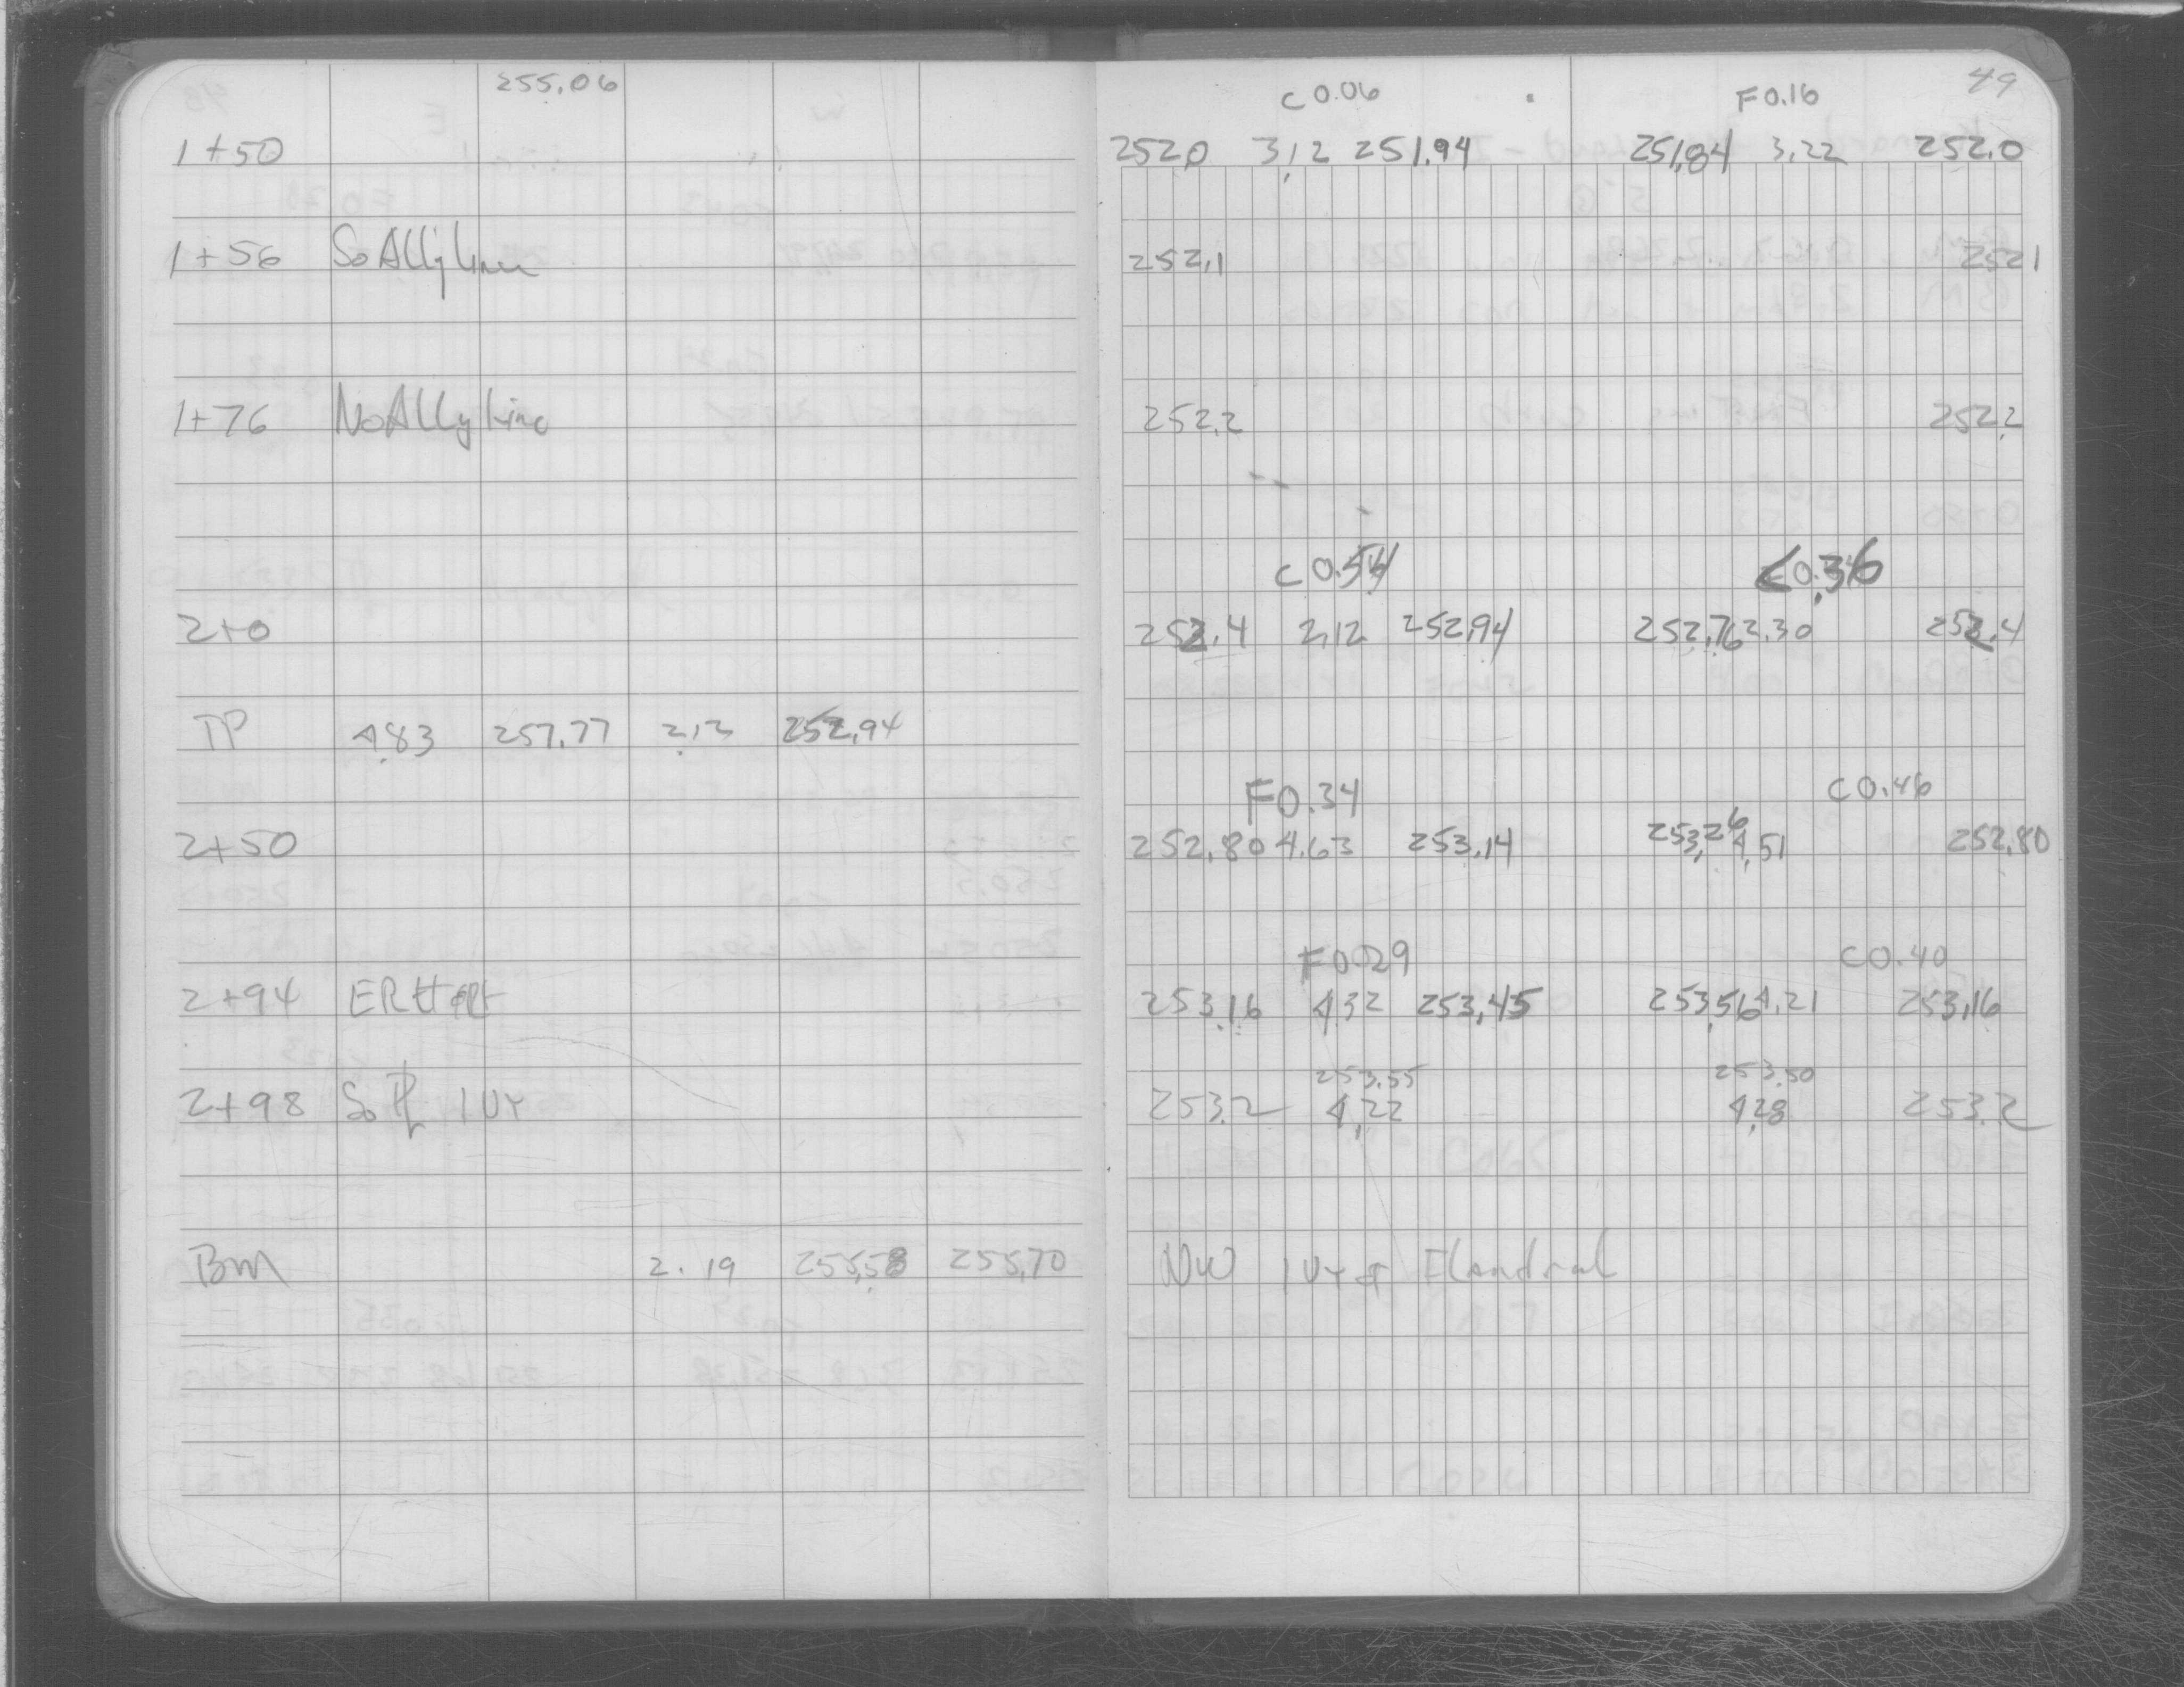 49
255.06 C 0.06 F 0.16
1+50 252.0 3.12 251.94 251.84 3.22 252.0
1+56 So Ally Line 252.1 252.1
1+76 No Ally Line 252.2 252.2
C 0.54 C 0.36
2+0 252.4 2.12 252.94 252.76 2.30 252.4
TP 4.83 257.77 2.12 252.94
F 0.34 C 0.46
2+50 252.80 4.63 253.14 253.26 4.51 252.80
F 0.29 C 0.40
2+94 253.16 4.32 253.45 253.56 4.21 253.16
253.55 253.50
2+98 So PL IVY 253.2 4.22 4.28 253.2
BM 2.19 255.58 255.70 NW IVY &